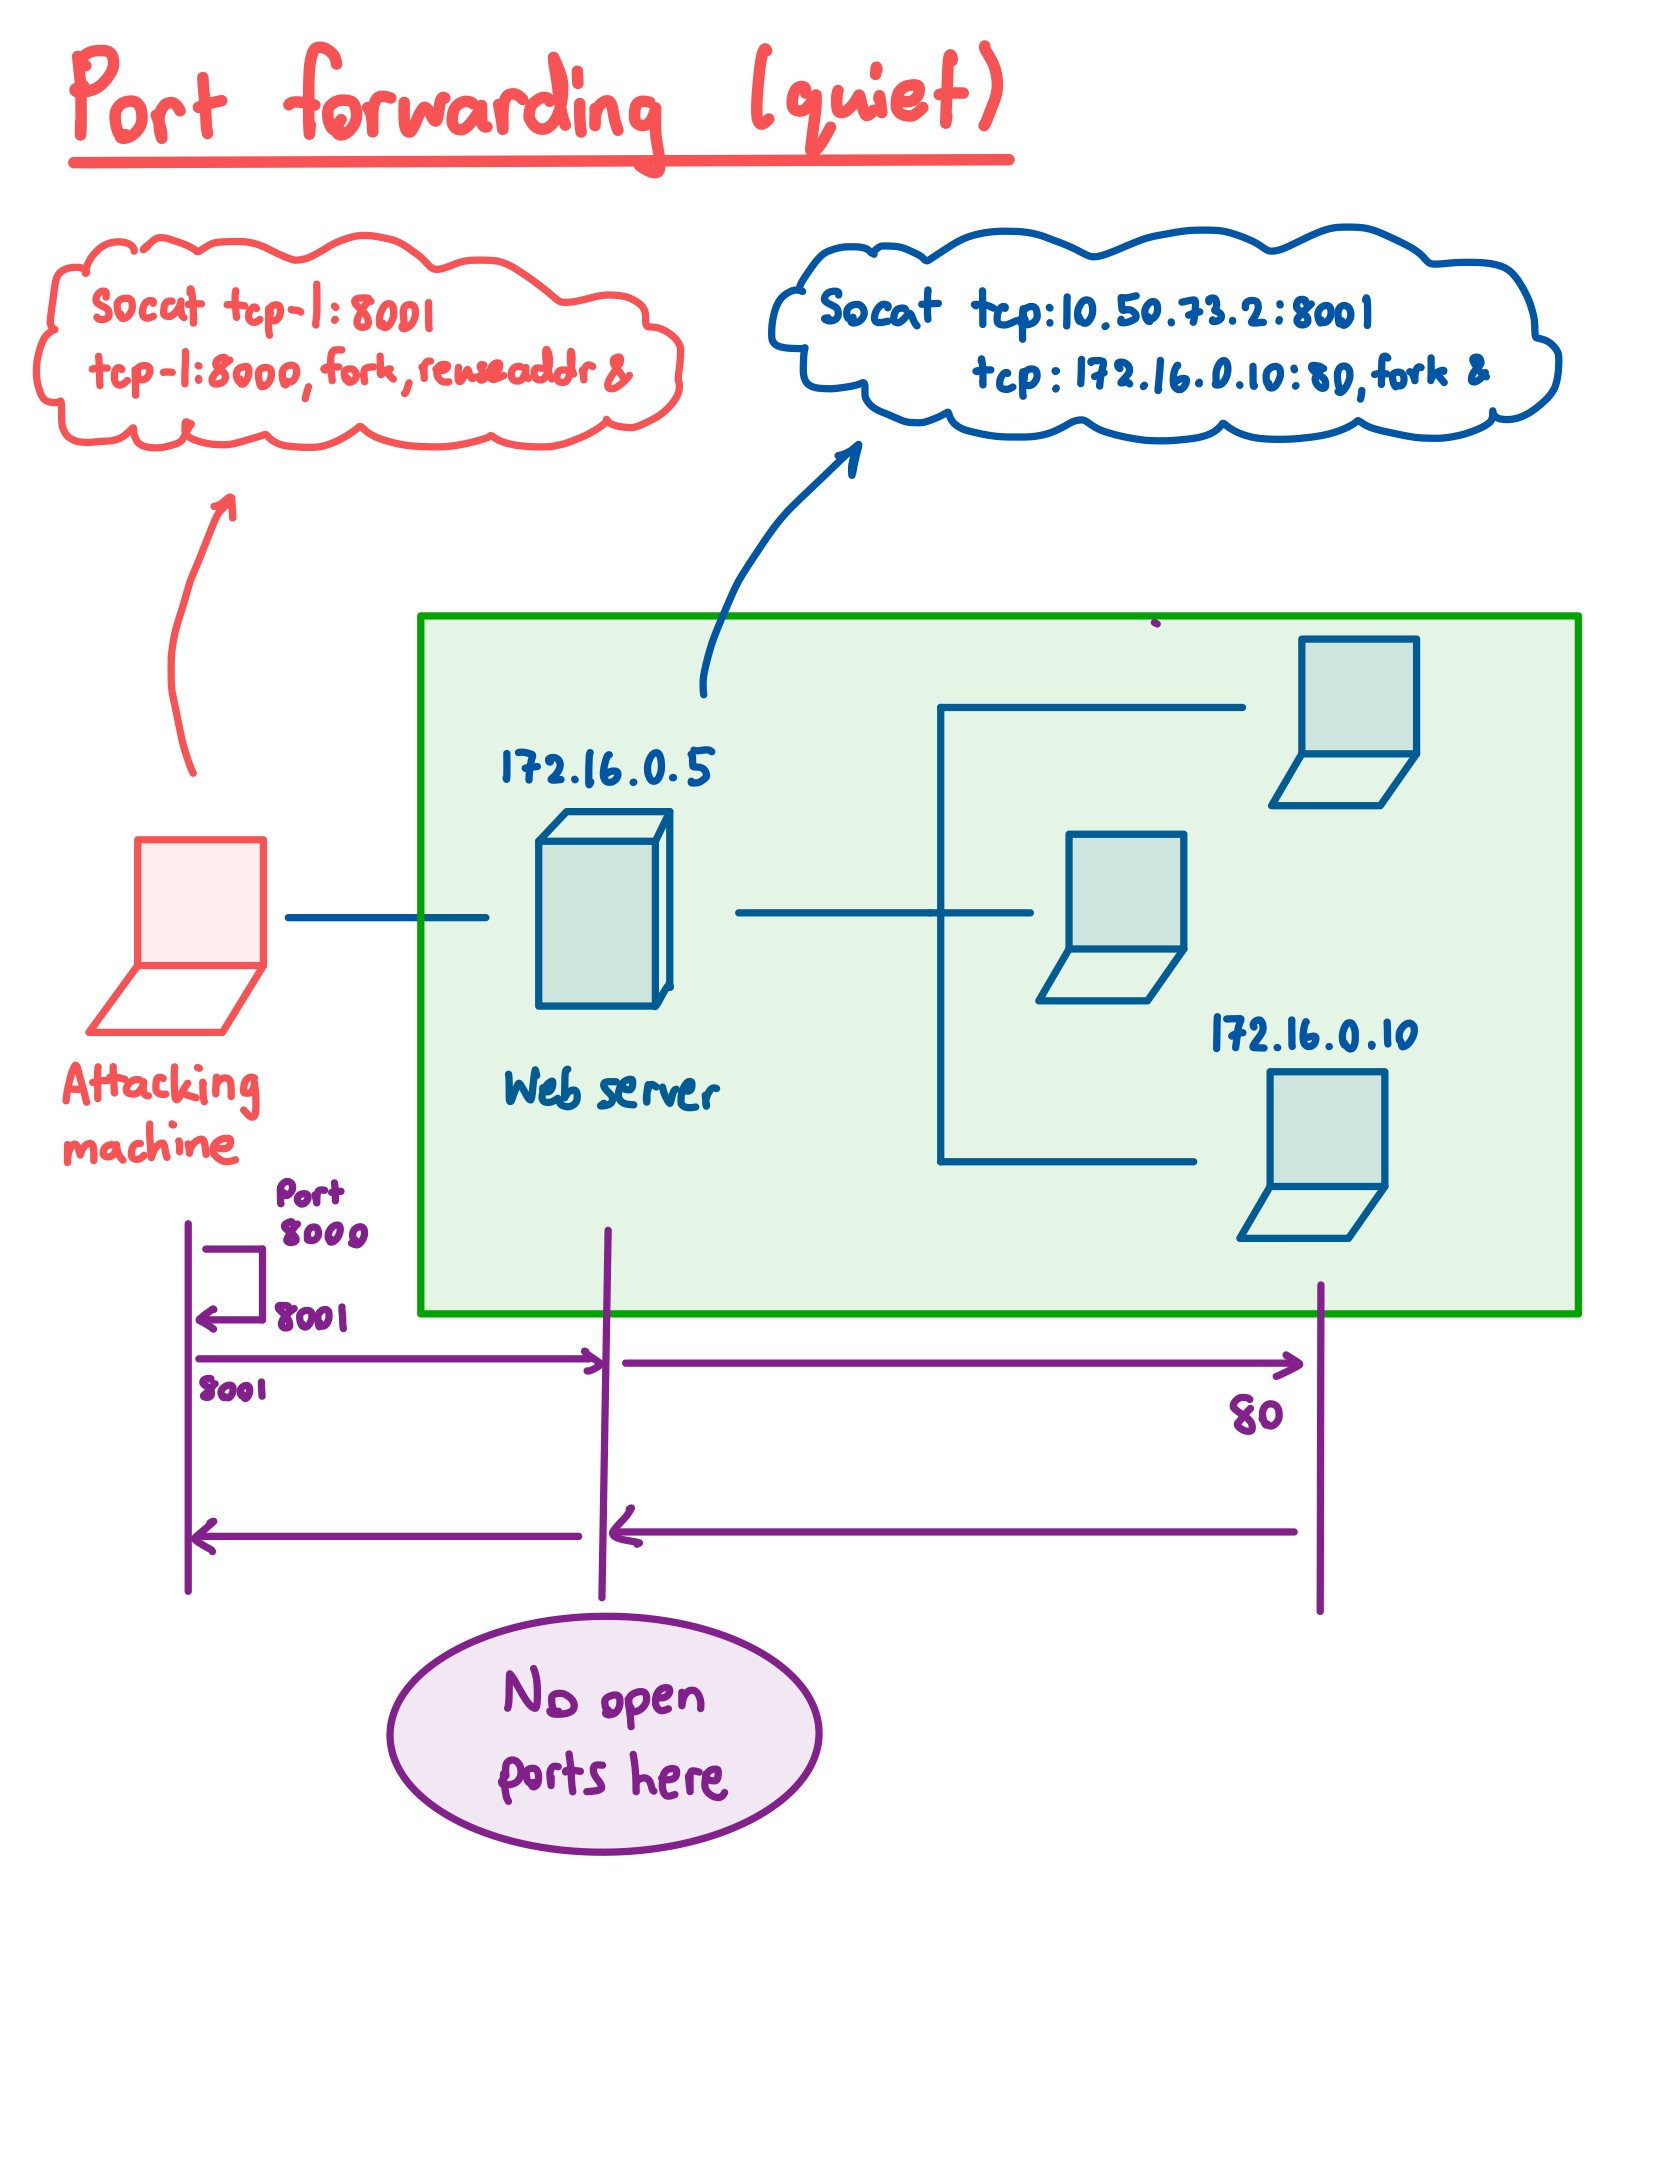 Port forwarding (quiet)
socat tcp-l:8001
tcp-l:8000,fork,reuseaddr &
Socat tcp:10.50.73.2:8001
tcp:172.16.0.10:80,fork &
172.16.0.5
172.16.0.10
Web server
Attacking
machine
Port
8000
8001
8001
80
No open
ports here